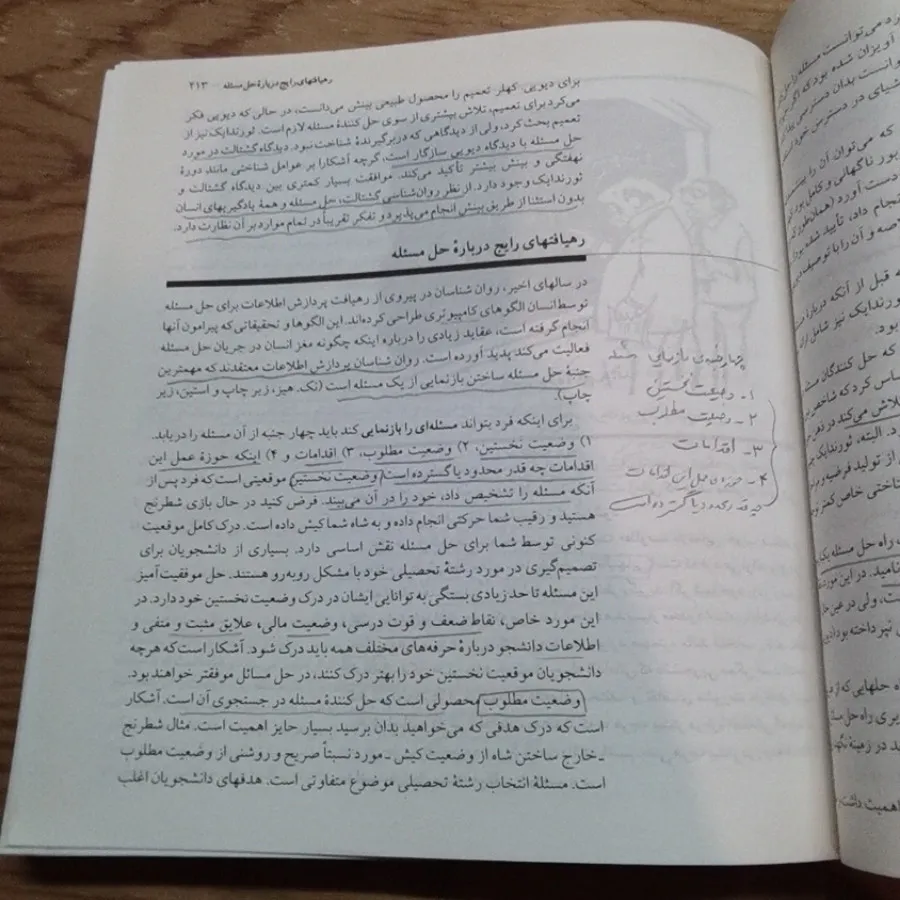 رهیافتهای رایج دربارهٔ حل مسئله ۴۱۳
برای دیویی. کهلر، تعمیم را محصول طبیعی بینش می‌دانست، در حالی که دیویی فکر
می‌کرد برای تعمیم، تلاش بیشتری از سوی حل کنندهٔ مسئله لازم است. ثورندایک نیز از
تعمیم بحث کرد، ولی از دیدگاهی که دربرگیرندهٔ شناخت نبود. دیدگاه گشتالت در مورد
حل مسئله با دیدگاه دیویی سازگار است، گرچه آشکارا بر عوامل شناختی مانند دورهٔ
نهفتگی و بینش بیشتر تأکید می‌کند. موافقت بسیار کمتری بین دیدگاه گشتالت و
ثورندایک وجود دارد. از نظر روان‌شناسی گشتالت، حل مسئله و همهٔ یادگیریهای انسان
بدون استثنا از طریق بینش انجام می‌پذیرد و تفکر تقریباً در تمام موارد بر آن نظارت دارد.
رهیافتهای رایج دربارهٔ حل مسئله
در سالهای اخیر، روان شناسان در پیروی از رهیافت پردازش اطلاعات برای حل مسئله
توسط انسان الگوهای کامپیوتری طراحی کرده‌اند. این الگوها و تحقیقاتی که پیرامون آنها
انجام گرفته است، عقاید زیادی را درباره اینکه چگونه مغز انسان در جریان حل مسئله
فعالیت می‌کند پدید آورده است. روان شناسان پردازش اطلاعات معتقدند که مهمترین
جنبهٔ حل مسئله ساختن بازنمایی از یک مسئله است (نک. هیز، زیر چاپ و استین، زیر
چاپ).
برای اینکه فرد بتواند مسئله‌ای را بازنمایی کند باید چهار جنبه از آن مسئله را دریابد.
۱) وضعیت نخستین، ۲) وضعیت مطلوب، ۳) اقدامات و ۴) اینکه حوزهٔ عمل این
اقدامات چه قدر محدود یا گسترده است. وضعیت نخستین موقعیتی است که فرد پس از
آنکه مسئله را تشخیص داد، خود را در آن می‌بیند. فرض کنید در حال بازی شطرنج
هستید و رقیب شما حرکتی انجام داده و به شاه شما کیش داده است. درک کامل موقعیت
کنونی توسط شما برای حل مسئله نقش اساسی دارد. بسیاری از دانشجویان برای
تصمیم‌گیری در مورد رشتهٔ تحصیلی خود با مشکل روبه‌رو هستند. حل موفقیت آمیز
این مسئله تا حد زیادی بستگی به توانایی ایشان در درک وضعیت نخستین خود دارد. در
این مورد خاص، نقاط ضعف و قوت درسی، وضعیت مالی، علایق مثبت و منفی و
اطلاعات دانشجو دربارهٔ حرفه‌های مختلف همه باید درک شود. آشکار است که هرچه
دانشجویان موقعیت نخستین خود را بهتر درک کنند، در حل مسائل موفقتر خواهند بود.
وضعیت مطلوب محصولی است که حل کنندهٔ مسئله در جستجوی آن است. آشکار
است که درک هدفی که می‌خواهید بدان برسید بسیار حایز اهمیت است. مثال شطرنج
ـ خارج ساختن شاه از وضعیت کیش ـ مورد نسبتاً صریح و روشنی از وضعیت مطلوب
است. مسئلهٔ انتخاب رشتهٔ تحصیلی موضوع متفاوتی است. هدفهای دانشجویان اغلب
۱- وضعیت نخستین
۲- وضعیت مطلوب
۳- اقدامات
۴- حوزه‌ی عمل این اقدامات
چه قدر محدود یا گسترده است